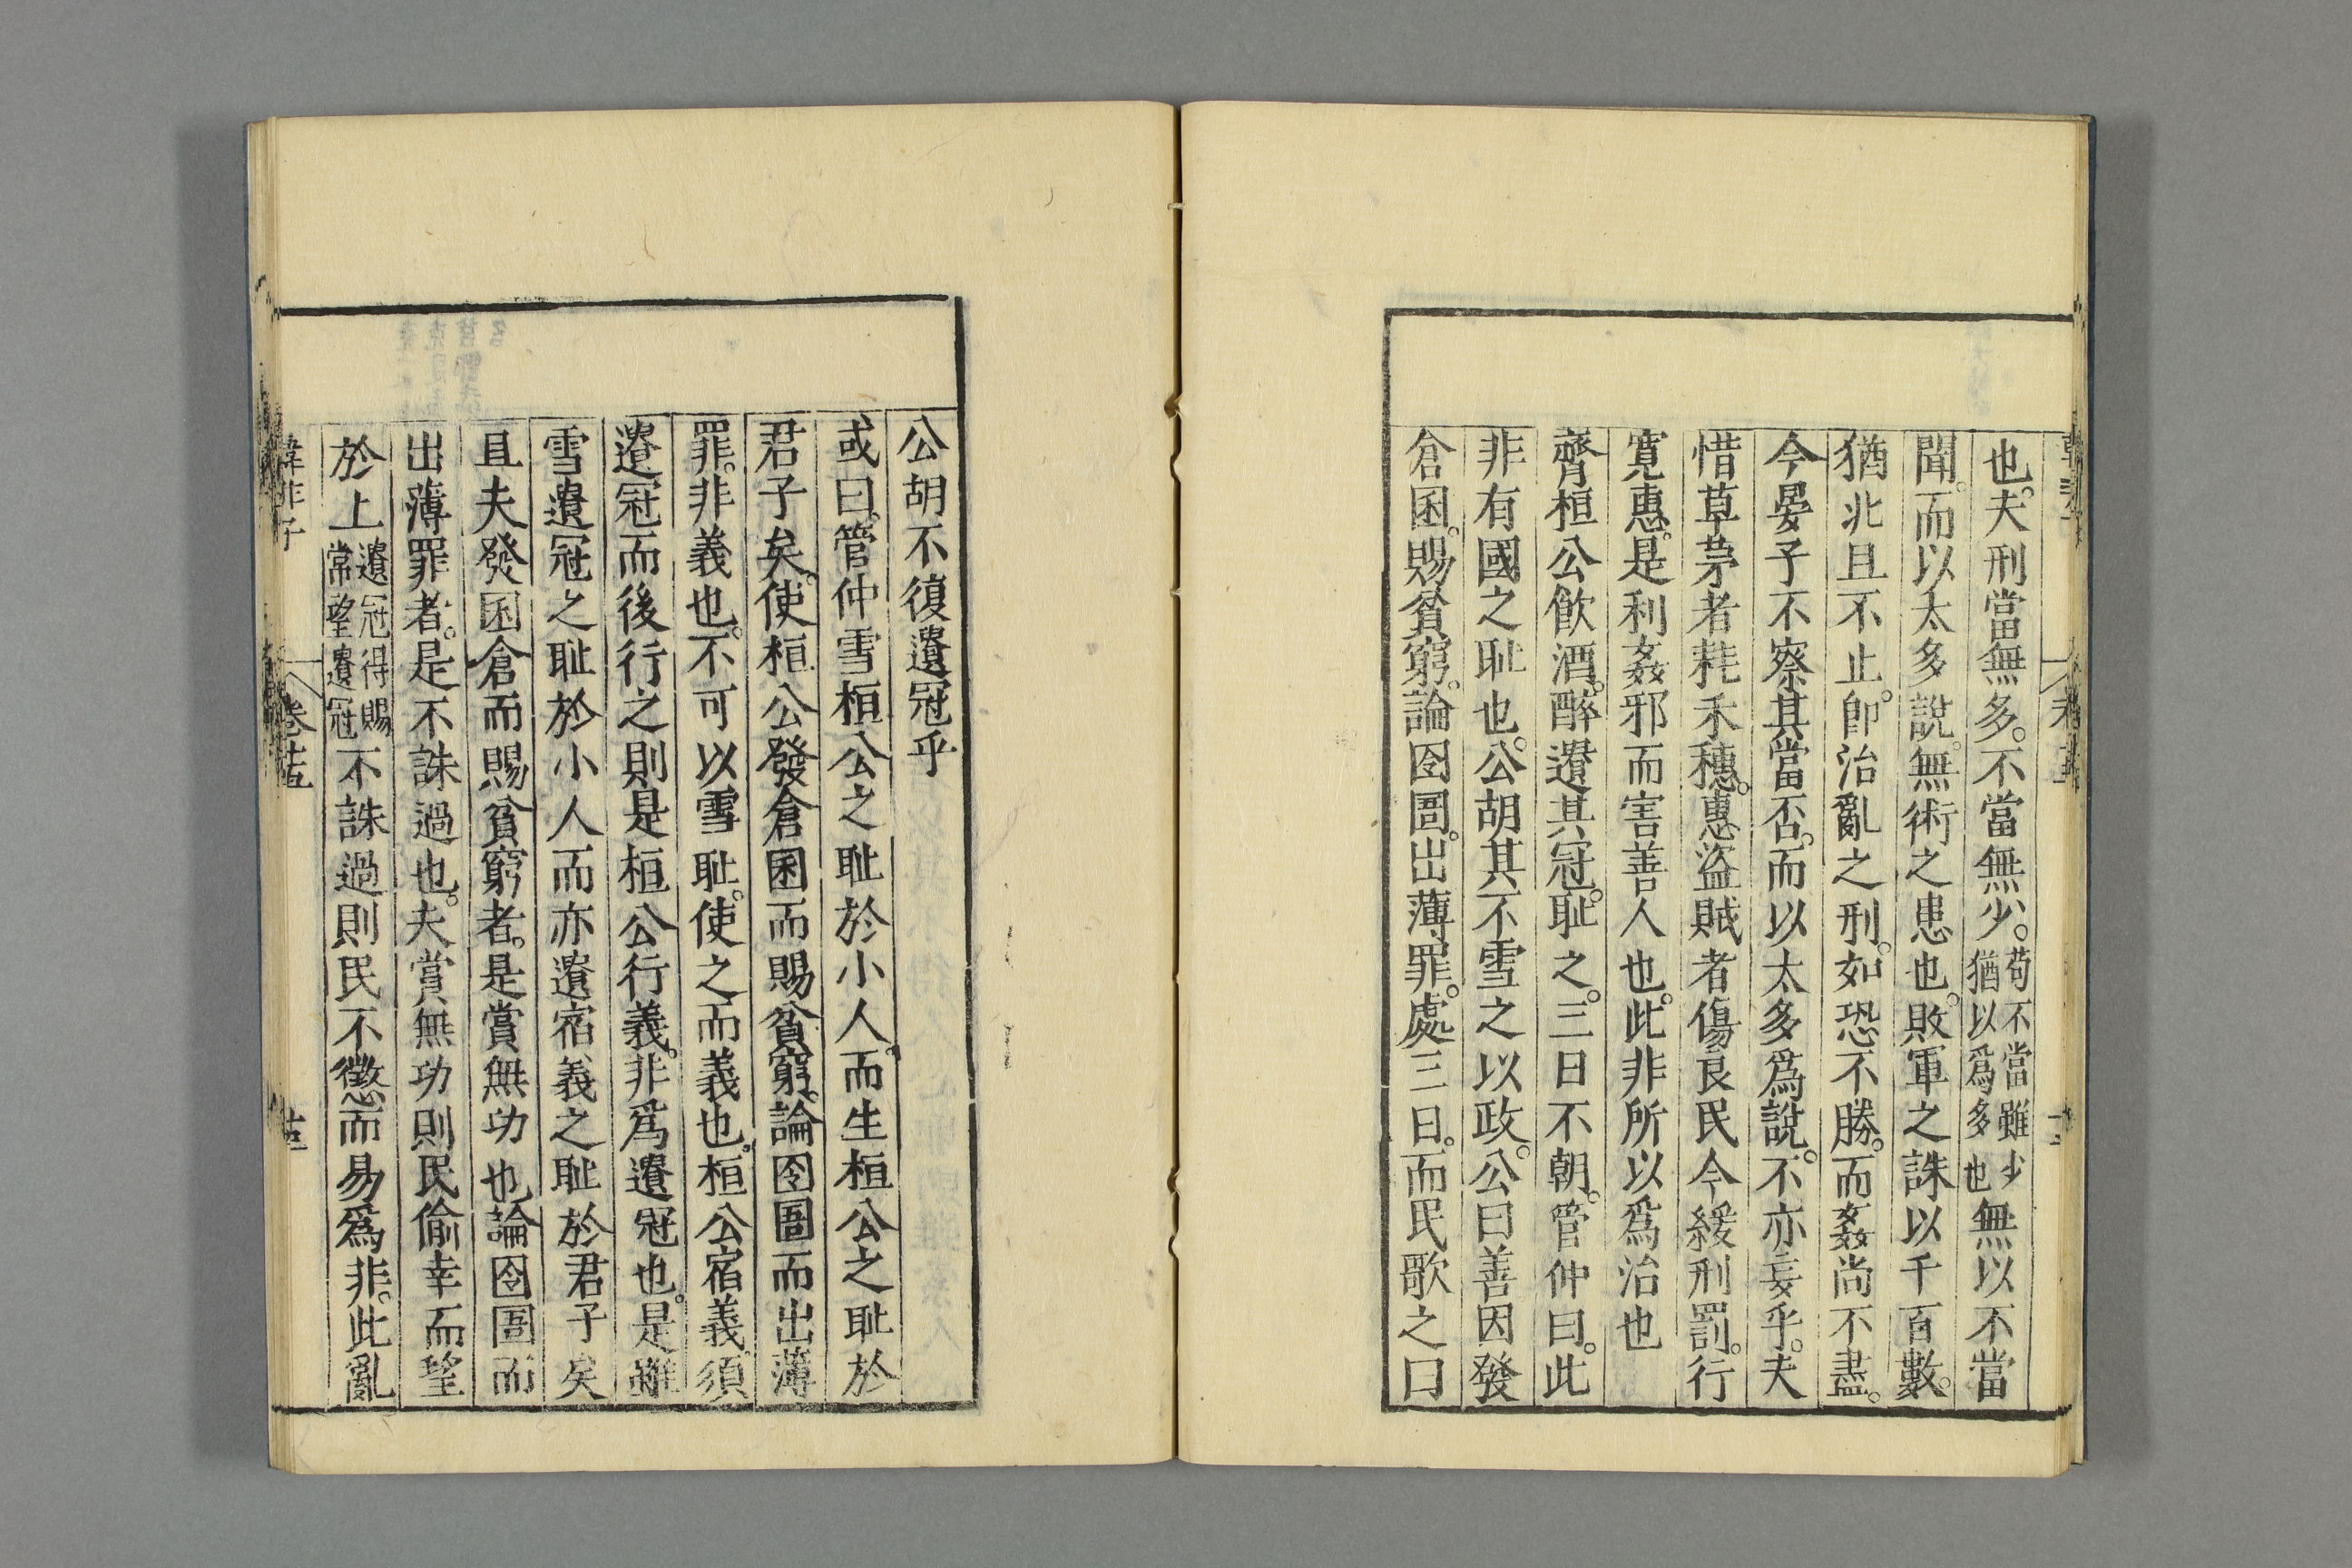 也。夫刑當無多。不當無少。苟不當雖少猶以爲多也無以不當
聞。而以太多說。無術之患也。敗軍之誅以千百數。
猶北且不止。卽治亂之刑。如恐不勝。而姦尚不盡。
今晏子不察其當否。而以太多爲說。不亦妄乎。夫
惜草茅者耗禾穗。惠盜賊者傷良民今緩刑罰。行
寬惠。是利姦邪而害善人也。此非所以爲治也
齊桓公飲酒。醉遺其冠。耻之。三日不朝。管仲曰。此
非有國之耻也。公胡其不雪之以政。公曰善因發
倉囷。賜貧窮。論囹圄。出薄罪。處三日。而民歌之曰
公胡不復遺冠乎
或曰。管仲雪桓公之耻於小人。而生桓公之耻於
君子矣。使桓公發倉囷而賜貧窮。論囹圄而出薄
罪。非義也。不可以雪耻。使之而義也。桓公宿義。須
遺冠而後行之則是桓公行義。非爲遺冠也。是雖
雪遺冠之耻於小人而亦遺宿義之耻於君子矣
且夫發囷倉而賜貧窮者。是賞無功也論囹圄而
出薄罪者。是不誅過也。夫賞無功則民偷幸而望
於上遺冠得賜常望遺冠不誅過則民不懲而易爲非。此亂
韓非子 卷十五